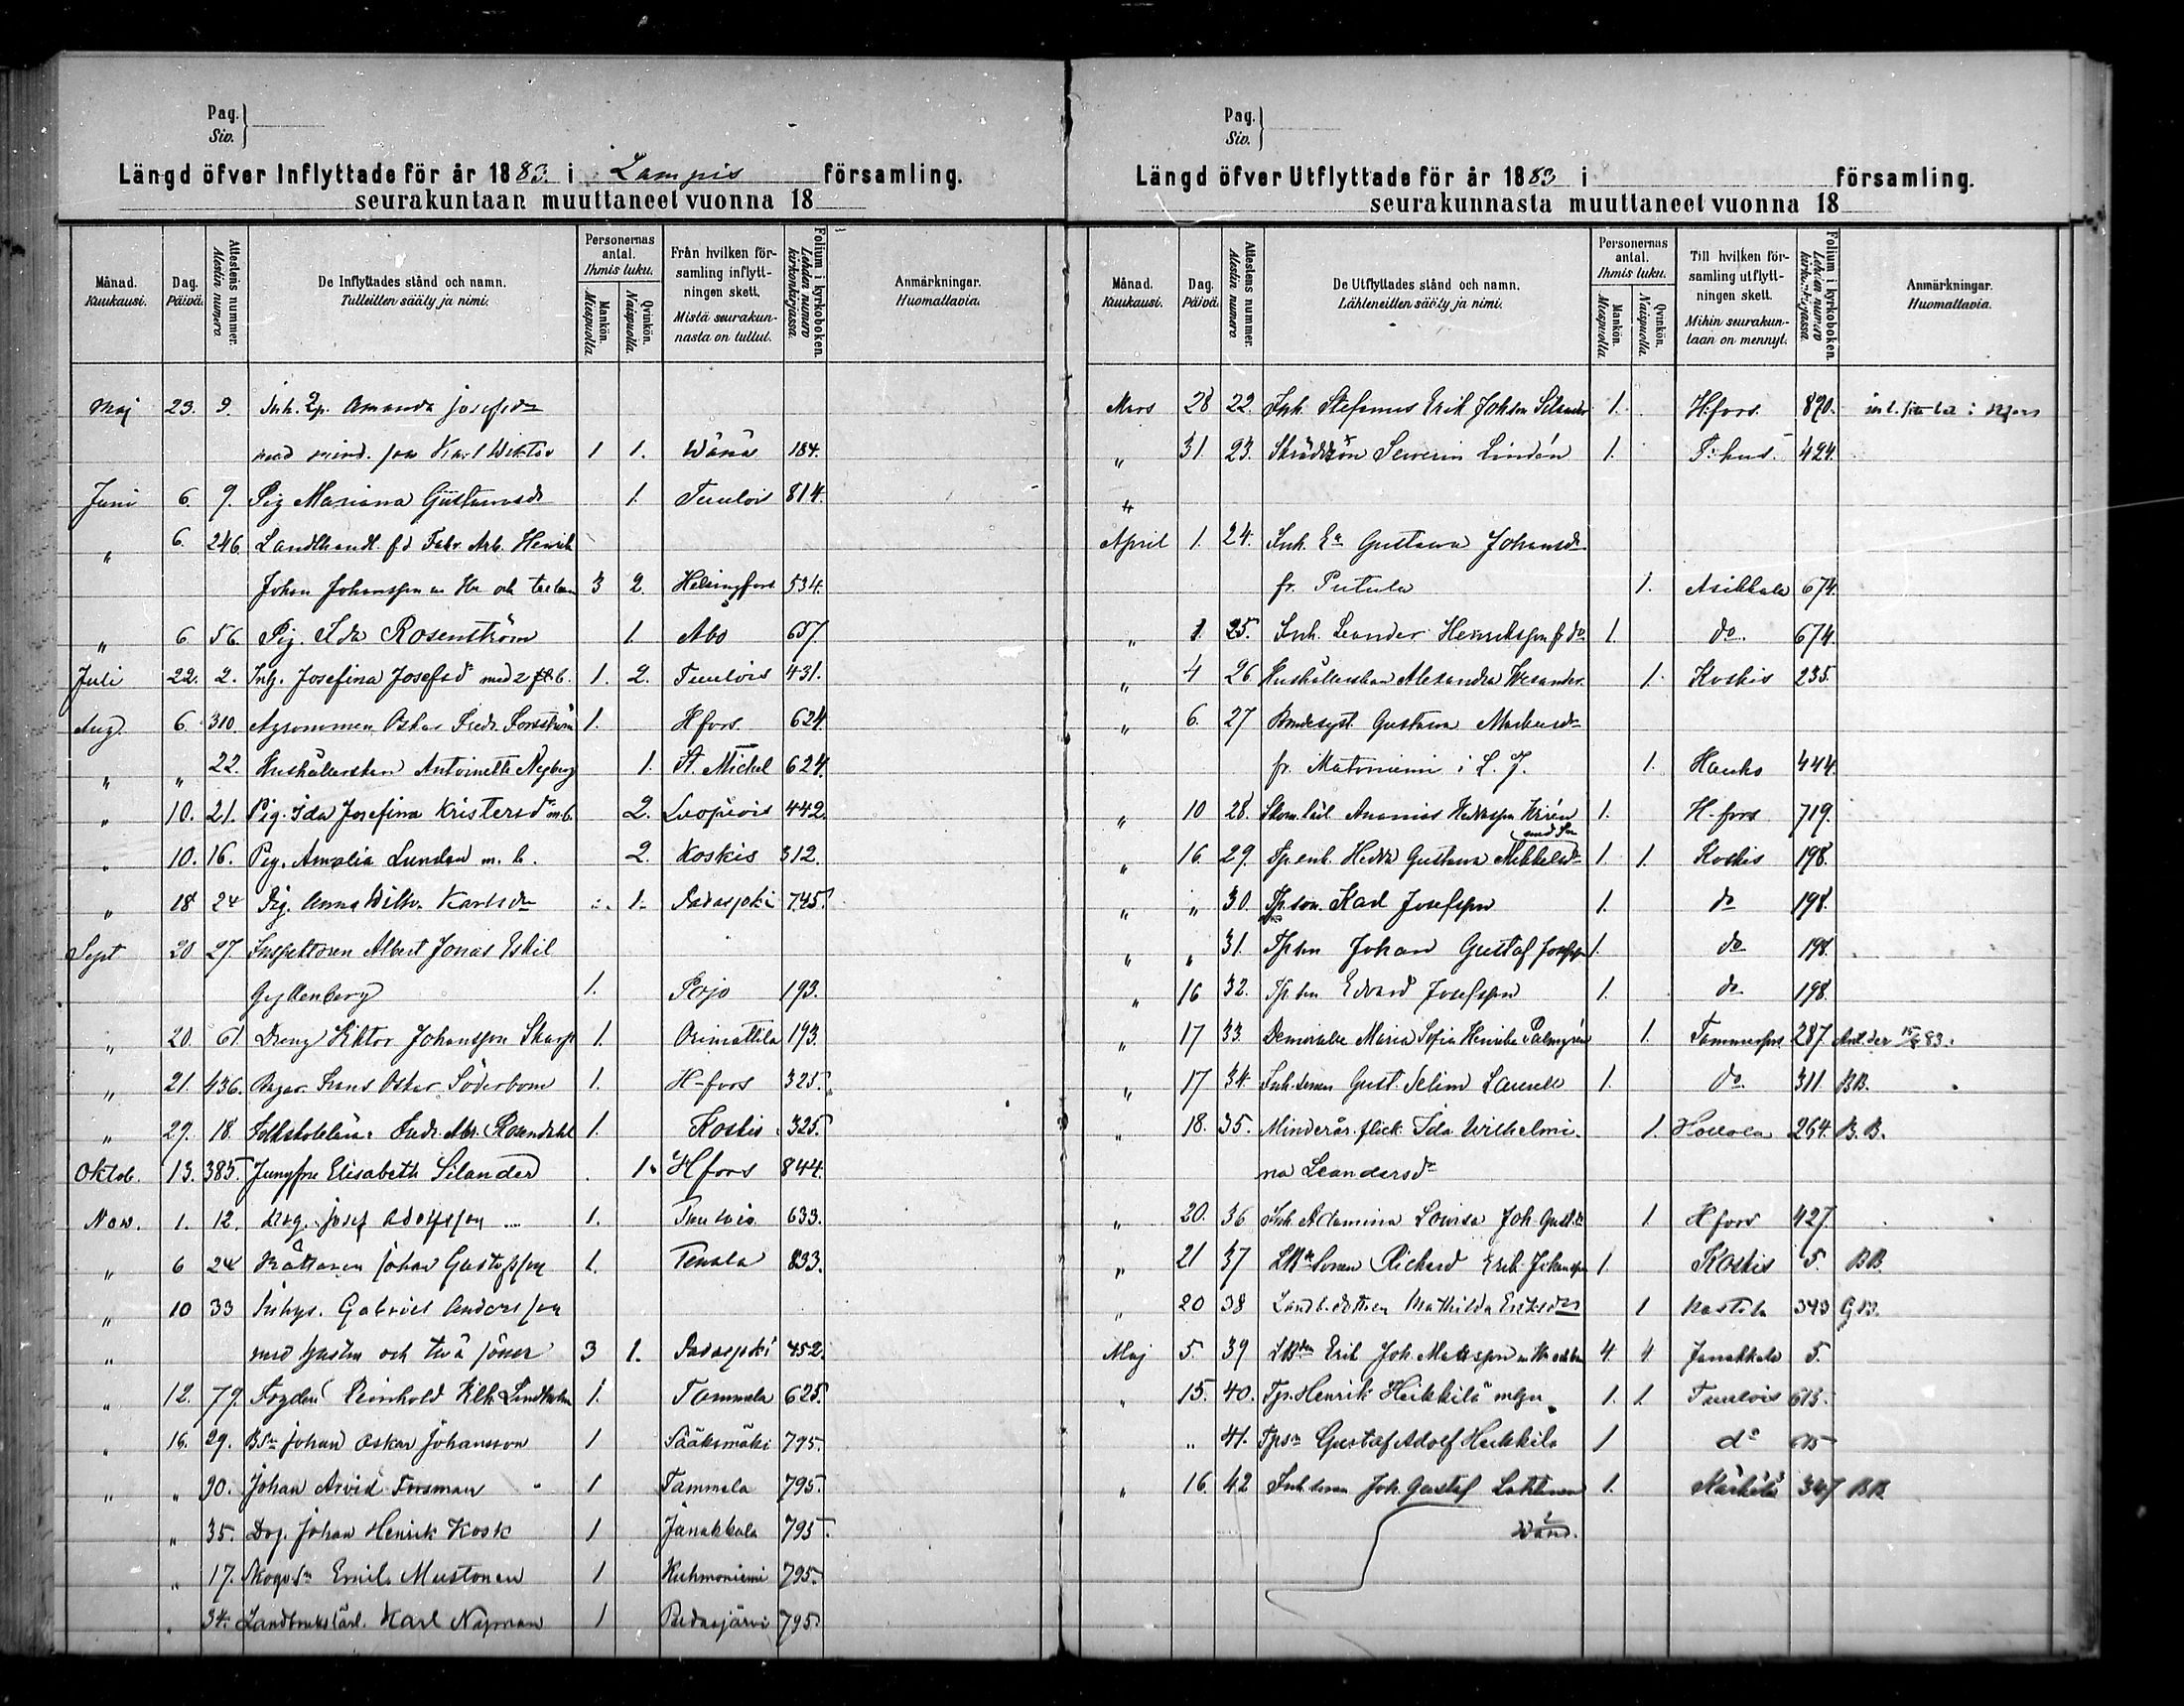 Pag.
Siv.
Längd öfver Inflyttade för år 1883 i Lampis församling.
seurakuntaan muuttaneet vuonna 18
Månad. Kuukausi. Dag. Päivä. Attestens nummer. Atestin numero De Inflyttades stånd och namn. Tulleitten sääty ja nimi. Personernas antal. Ihmis luku. Mankön. Miespuolia Qvinkön. Naispuolia. Från hvilken församling inflyttningen skett. Mistä seurakunnasta on tullut. Folium i kyrkoboken. Lehden numero kirkonkirjassa Anmärkningar. Huomattavia.
Maj 23. 9. Inh. Amanda Josefsdr
med mind. son Karl Wiktor 1 1. Wånå 184.
Juni 6. 9. Pig Mariana Gustavsdr 1. Tuulois 814.
" 6. 246 Landthandl. fd Fabr. Arb. Henrik
Johan Johansson m Hu och två barn 3 2. Helsingfors 534.
" 6 56 Pig. Ida Rosenström 1. Åbo 657.
Juli 22. 2. Inh. Josefina Josefsdr med 2 b. 1. 2. Tuulois 431.
Aug. 6. 310. Agronomen Oskar Fredr. Forsström 1. Hfors. 624
" " 22. Hushållerskan Antoinette Nyberg 1. St. Michel 624.
" 10. 21. Pig. Ida Josefina Kristersdr m.b. 2. Luopiois 442.
" 10. 16. Pig. Amalia Lundan m. b. 2. Koskis 312.
" 18 24 Pig. Anna Wilh. Karlsdr 1. Padasjoki 745.
Sept 20 27. Inspektoren Albert Jonas Eskil
Gyllenberg 1. Pojo 193.
" 20. 61. Dreng Viktor Johansson Skarp 1. Orimattila 193.
" 21. 436. Bagar. Frans Oskar Söderbom 1. H-fors 325.
" 29. 18. Folkskolelär. Fredr. Abr. Rosendahl 1. Koskis 325.
Oktob. 13. 385. Jungfru Elisabeth Silander 1. Hfors 844.
Nov. 1. 12. Drg. Josef Adolfsson 1. Tuulois 633.
" 6 24 Rättaren Johan Gustafsson 1. Tenala 833.
" 10 33 Inhys. Gabriel Andersson
" med hustru och två söner 3 1. Padasjoki 452.
" 12. 79. Fogden Reinhold Vilh. Lindholm 1. Tammela 625.
" 16. 29. BSn Johan Oskar Johansson 1 Sääksmäki 795.
" " 90. Johan Arvid Forsman 1 Tammela 795.
" 35. Drg. Johan Henrik Kosk 1 Janakkala 795.
" 17. SkogvSn Emil Mustonen 1 Kuhmoniemi 795.
" 34. Landtbrukslärl. Karl Nyman 1 Pudasjärvi 795.
Pag.
Siv.
Längd öfver Utflyttade för år 1883 i församling.
seurakunnasta muuttaneet vuonna 18
Månad. Kuukausi. Dag. Päivä. Attestens nummer. Atestin numero De Utflyttades stånd och namn. Lähteneitten sääty ja nimi. Personernas antal. Ihmis luku. Mankön. Miespuolia Qvinkön. Naispuolia. Till hvilken församling utflyttningen skett. Mihin seurakuntaan on mennyt. Folium i kyrkoboken. Lehden numero kirkonkirjassa. Anmärkningar. Huomattavia.
Mars 28 22. Inh. Stefanus Erik Johsson Silander 1. H:fors. 870.
" 31. 23. Skräddson Severin Lindén 1. T:hus 424.
"
April 1. 24. Inh. Ea Gustava Johansdr
fr. Putula 1. Asikkala 674.
" 1. 25. Inh. Leander Henriksson fr do 1. do 674.
" 4 26. Hushållerskan Alexandra Wesander. 1. Koskis 235.
" 6. 27 Bondesyst. Gustava Markusdr
fr. Matoniemi i L. J. 1. Hauho 444.
" 10 28. Skom.lärl. Ananias Hedksson Virén 1. H-fors 719.
med Son
" 16 29. Tp.enk. Hedda Gustava Mikkelsdr 1 1. Koskis 198.
" " 30. Tp.son. Karl Josefsson 1. do 198.
" " 31. Tp son Johan Gustaf Josefsson 1. do 198.
" 16 32. Tp. son Edvard Josefsson 1. do 198.
" 17 33. Demoiselle Maria Sofia Henrika Palmgrén 1. Tammerfors 287. 15/6 83.
" 17 34. Inh. sonen Gust. Selim Laurell 1. do. 311. BB.
" 18. 35. Minderår. flick. Ida Wilhelmi-
na Leandersdr 1. Hollola 264. B.B.
" 20. 36 Inh Adamina Lovisa Joh. Gust.dr 1. Hfors 427.
" 21 37 Sonen Richard Erik Johansson 1. Koskis 5. BB.
" 20 38 Landb. dottren Mathilda Eriksdr 1 Nastola 343 GB.
Maj 5. 39 Erik Joh. Mattsson m Hu och bn 4. 4 Janakkala 5.
" 15. 40. Tp. Henrik Heikkilä 1. 1. Tuulois 615.
" 41. Tpsn Gustaf Adolf Heikkilä 1 do 615
" 16. 42 Inh. sonen Joh. Gustaf Lahtinen 1. Kärkölä 347 BB.
Vänd.